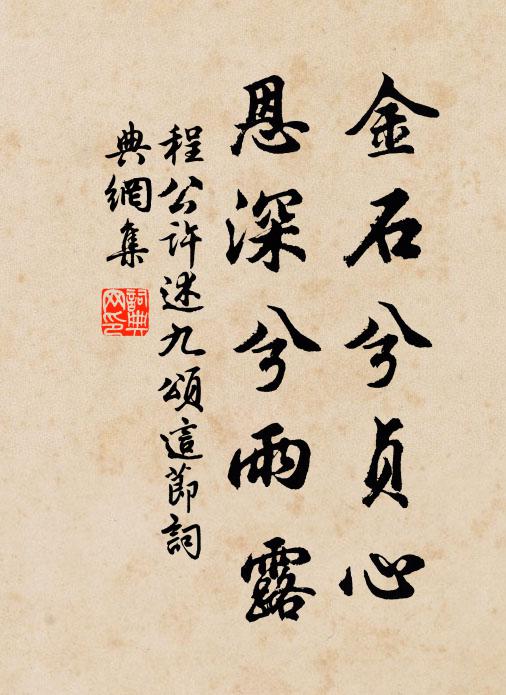 金石兮貞心
恩深兮雨露
程公許述九頌這節詞
典網集
詞典网印